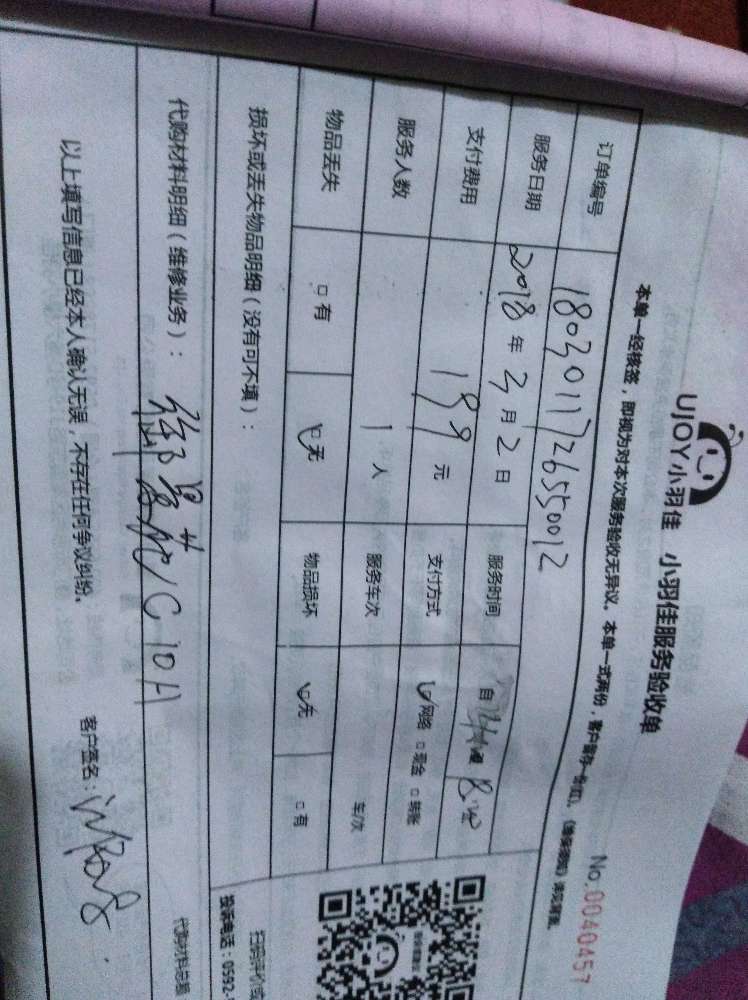 UJOY小羽佳 小羽佳服务验收单
本单一经核签，即视为对本次服务验收无异议。本单一式两份，客户留存一份(红)。
No.0040457
订单编号 1803011726550012
服务日期 2018 年 3 月 2 日 服务时间 自
支付费用 199 元 支付方式 网络 □现金 □转账
服务人数 1 人 服务车次 车/次
物品丢失 □有 无 物品损坏 无 □有
损坏或丢失物品明细（没有可不填）：
扫码评价或
投诉电话：0592-
代购材料明细（维修业务）： 代购材料总额
以上填写信息已经本人确认无误，不存在任何争议纠纷。 客户签名：